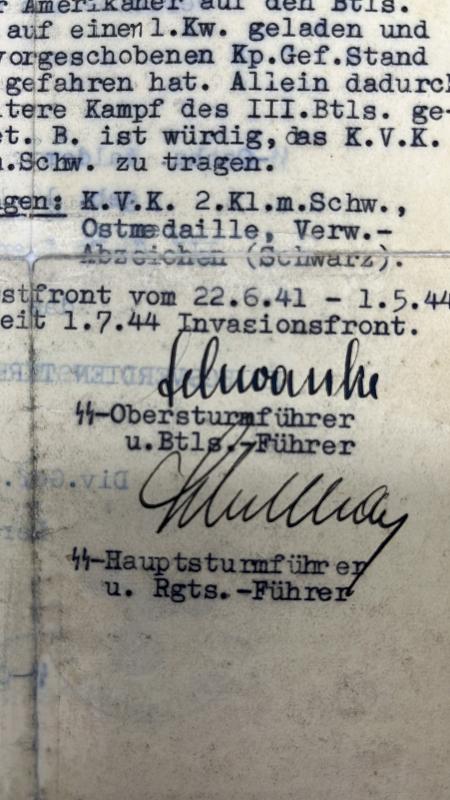 r Amerikaner auf den Btls.
auf einen l.Kw. geladen und
vorgeschobenen Kp.Gef.Stand
gefahren hat. Allein dadurch
itere Kampf des III.Btls. ge-
et. B. ist würdig, das K.V.K.
.Schw. zu tragen.
gen: K.V.K. 2.Kl.m.Schw.,
Ostmedaille, Verw.-
Abzeichen (Schwarz).
stfront vom 22.6.41 - 1.5.44
eit 1.7.44 Invasionsfront.
Schwanke
ϟϟ-Obersturmführer
u.Btls.-Führer
ϟϟ-Hauptsturmführer
u. Rgts.-Führer